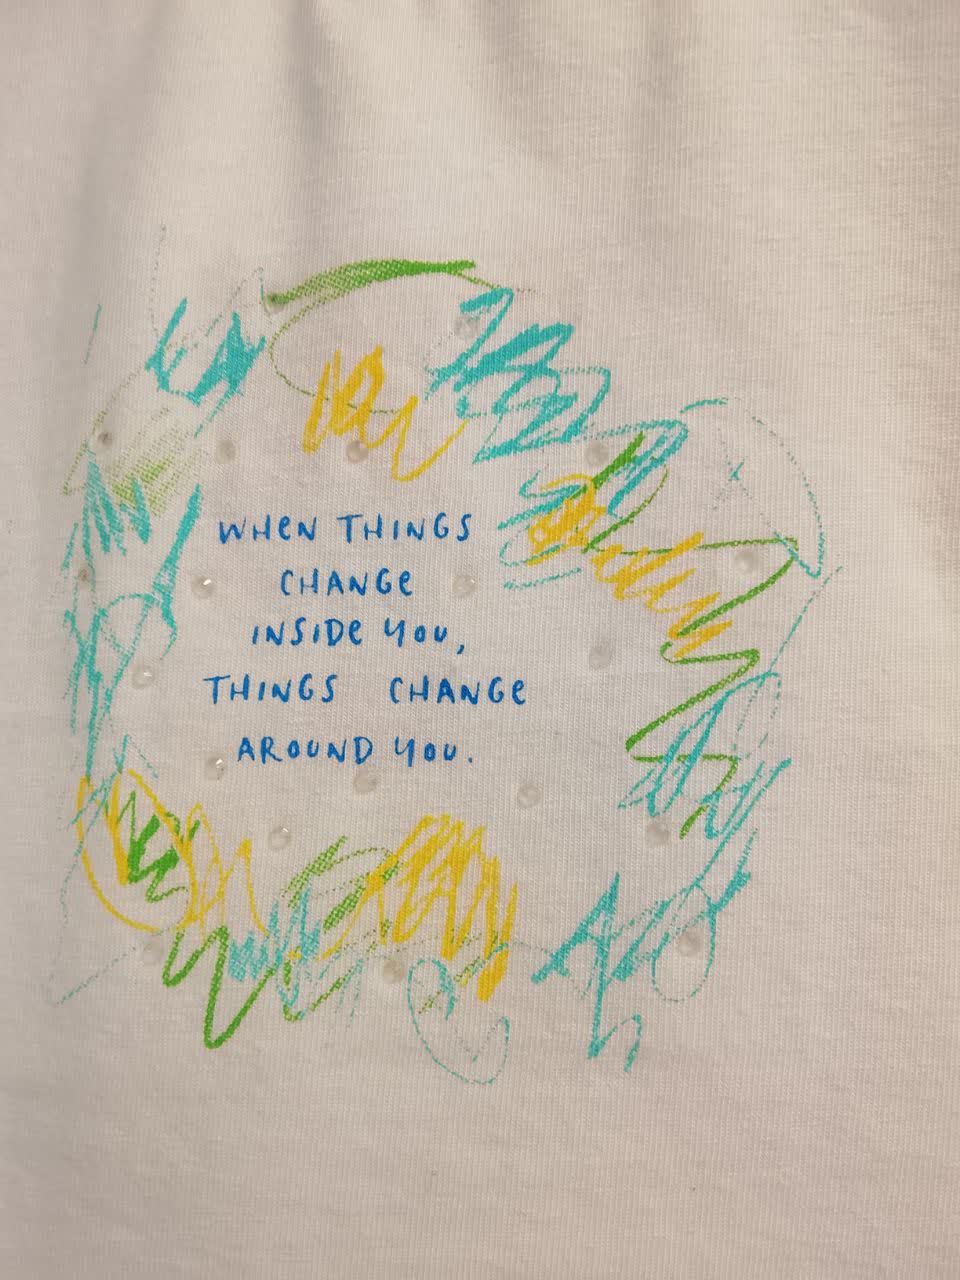 WHEN THINGS
CHANGE
INSIDE YOU,
THINGS CHANGE
AROUND YOU.